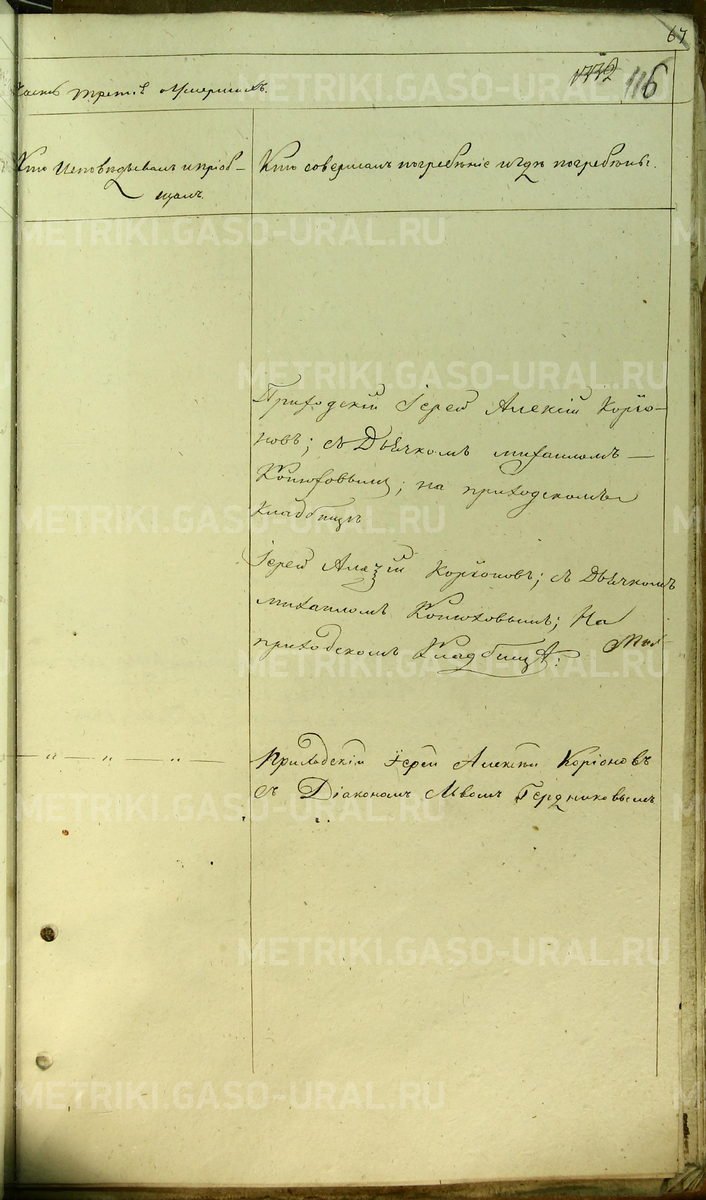 67
1772 116
Часть третiя о умершихъ.
Кто исповѣдывалъ и прiоб-
щалъ.
Кто совершалъ погребѣнiе и гдѣ погребѣны.
Приходскiй Iерей Алексiй Корiо-
новъ; съ Дьячкомъ михаиломъ —
Конюховымъ; на приходскомъ
Кладбищѣ
Iерей Алѣзiй Корiоновъ; съ Дьячкомъ
михаиломъ Конюховымъ; На
приходскомъ Кладбищѣ:
— „ — „ — „ —
Приходскiй Iерей Алексѣй Корiоновъ
съ Дiакономъ
METRIKI.GASO-URAL.RU